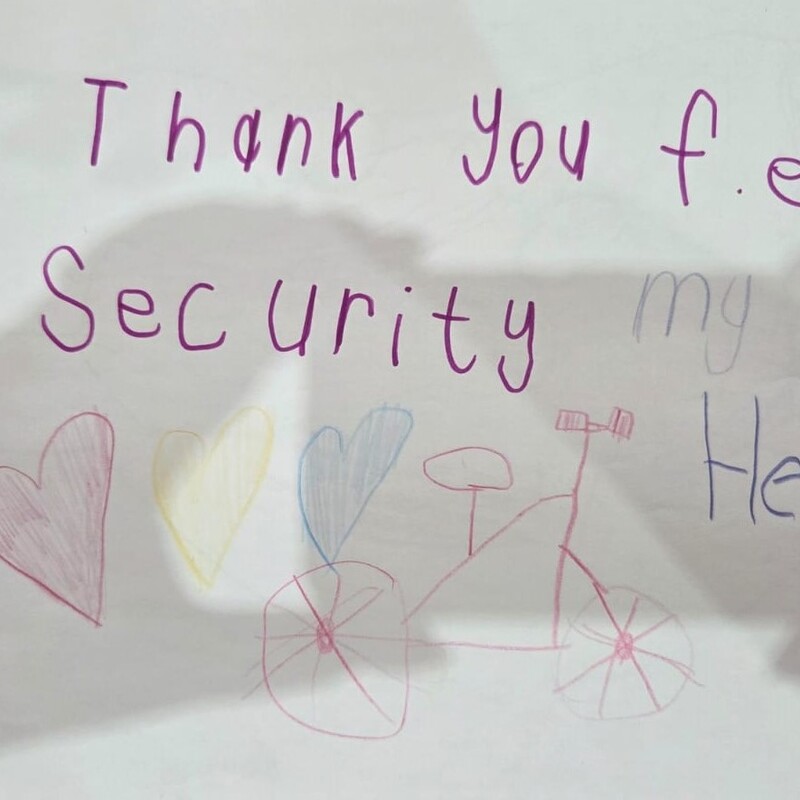 Thank you f.e
Security my
He